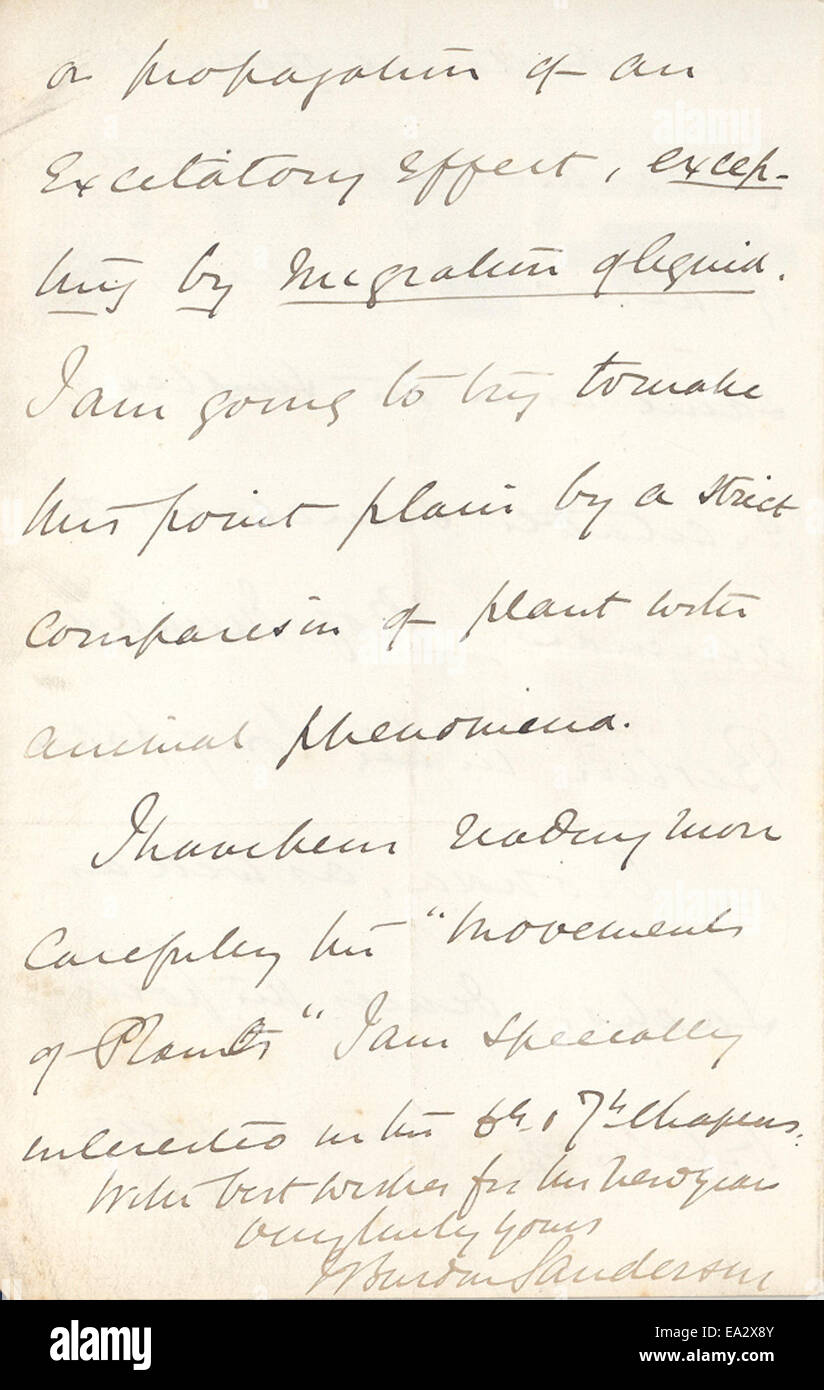 or propagation of an
Excitatory Effect, excep-
ting by Migration of liquid.
I am going to try to make
this point plain by a strict
comparison of plant with
animal phenomena.
I have been reading more
carefully the "Movements
of Plants" I am specially
interested in the 6th & 7th Chapters.
With best wishes for the New year
very truly yours
J Burdon Sanderson
alamy
Image ID: EA2X8Y
www.alamy.com